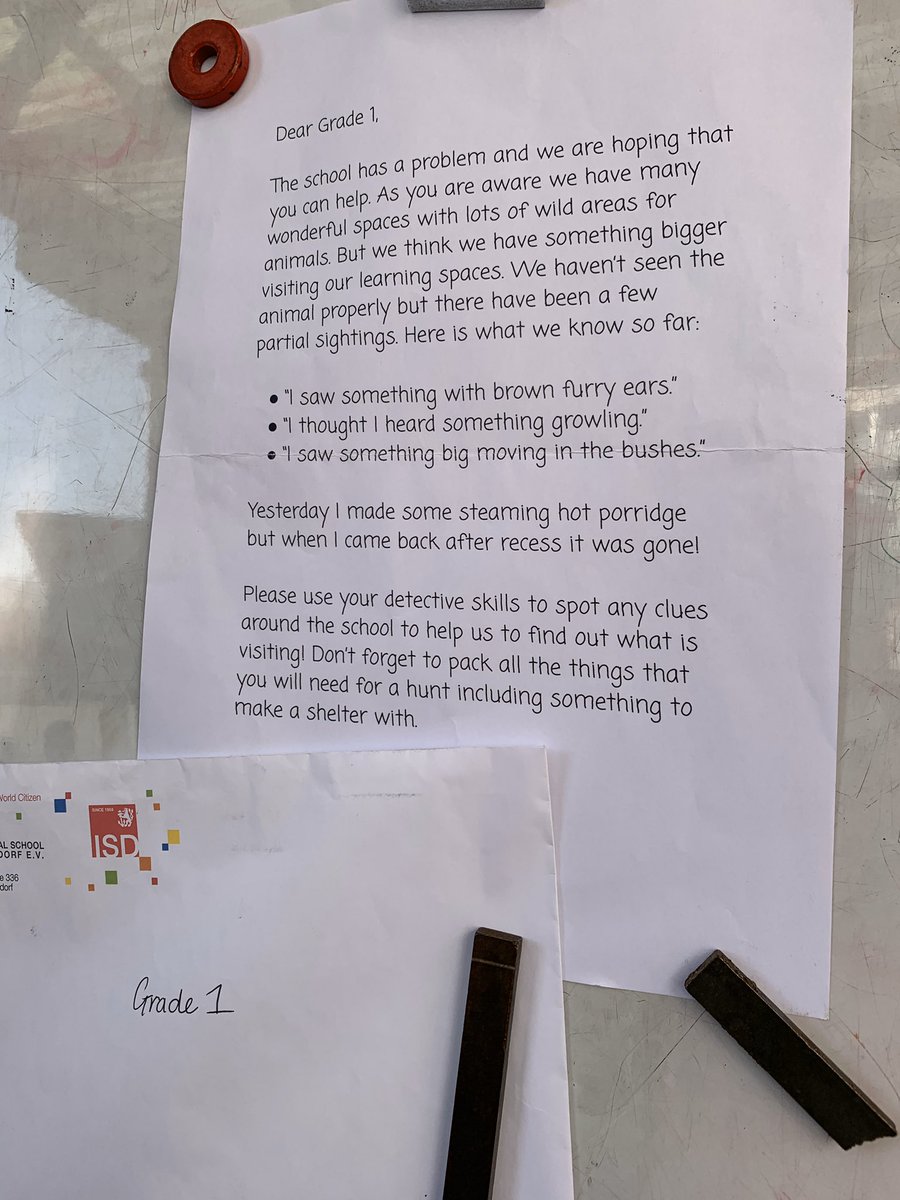 Dear Grade 1,
The school has a problem and we are hoping that
you can help. As you are aware we have many
wonderful spaces with lots of wild areas for
animals. But we think we have something bigger
visiting our learning spaces. We haven't seen the
animal properly but there have been a few
partial sightings. Here is what we know so far:
• "I saw something with brown furry ears."
• "I thought I heard something growling."
• "I saw something big moving in the bushes."
Yesterday I made some steaming hot porridge
but when I came back after recess it was gone!
Please use your detective skills to spot any clues
around the school to help us to find out what is
visiting! Don't forget to pack all the things that
you will need for a hunt including something to
make a shelter with.
World Citizen
SINCE 1968
ISD
AL SCHOOL
DORF E.V.
e 336
dorf
Grade 1